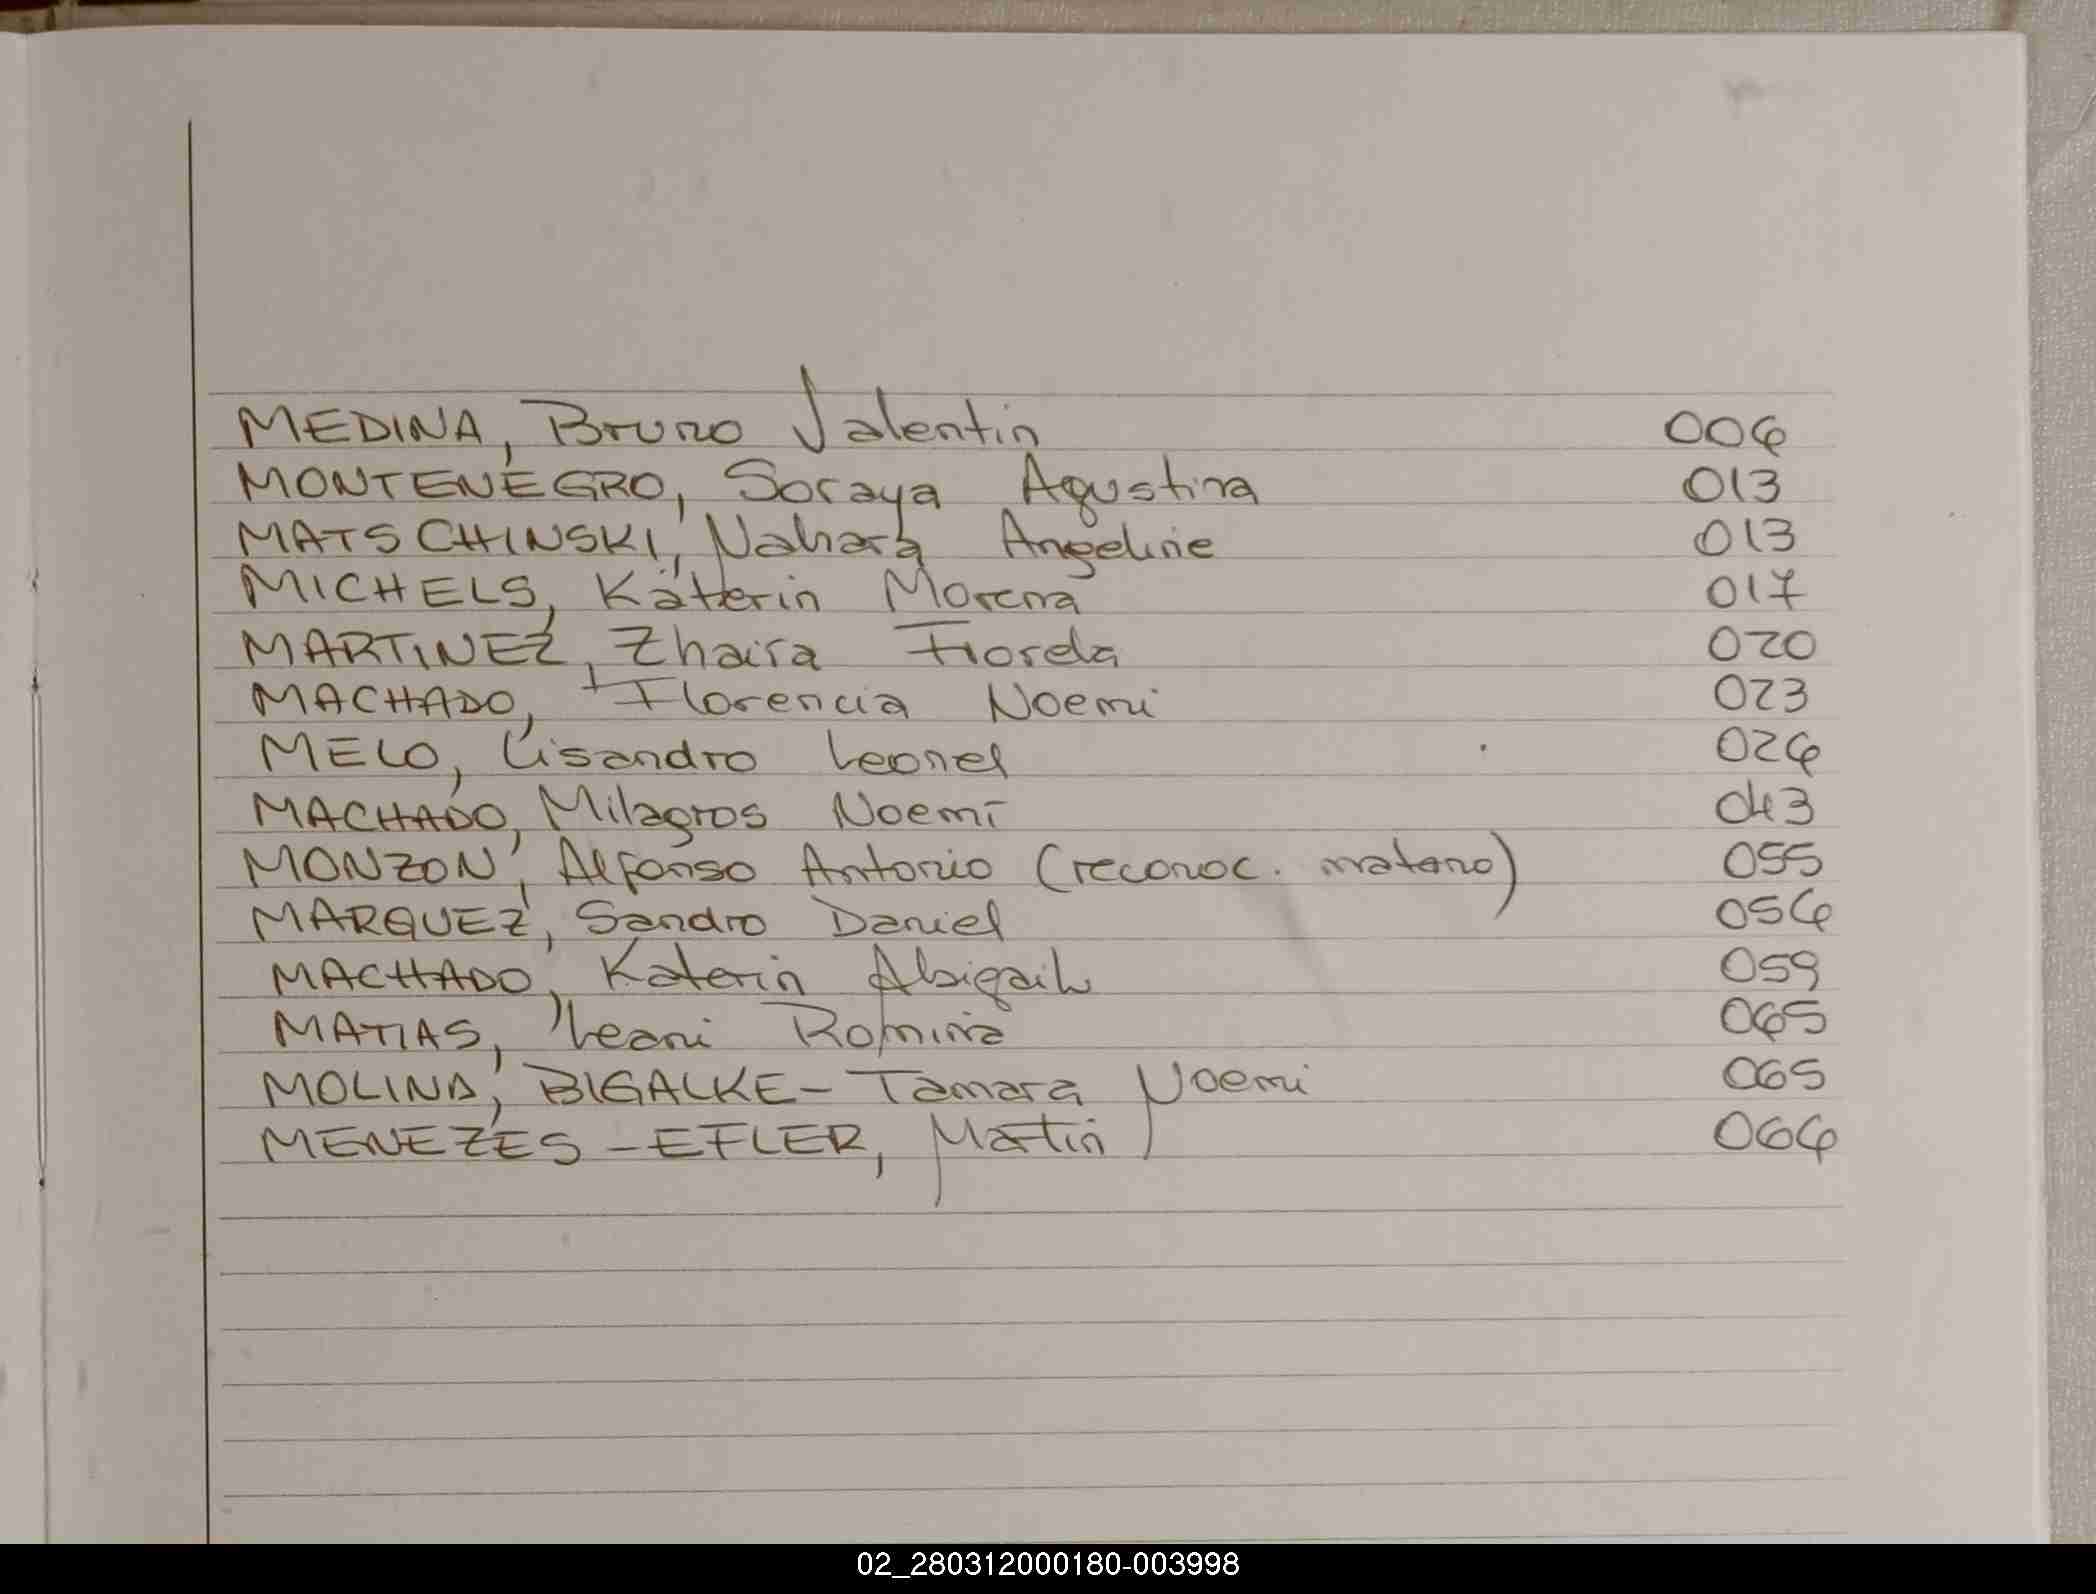 MEDINA, Bruno Valentin 006
MONTENEGRO, Soraya Agustina 013
MATSCHINSKI, Nahara Angeline 013
MICHELS, Katerin Morena 017
MARTINEZ, Zhaira Fiorela 020
MACHADO, Florencia Noemi 023
MELO, Lisandro Leonel 026
MACHADO, Milagros Noemi 043
MONZON, Alfonso Antonio (reconoc. materno) 055
MARQUEZ, Sandro Daniel 056
MACHADO, Katerin Abigail 059
MATIAS, Leani Romina 065
MOLINA, BIGALKE - Tamara Noemi 065
MENEZES - EFLER, Martin 066
02_280312000180-003998